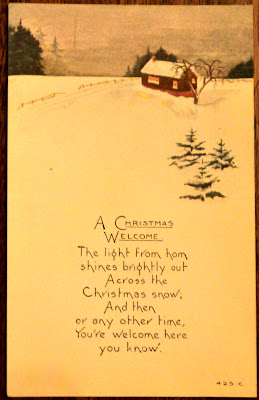 A CHRISTMAS
WELCOME
The light from hom
shines brightly out
Across the
Christmas snow;
And then
or any other time,
You're welcome here
you know.
425 C